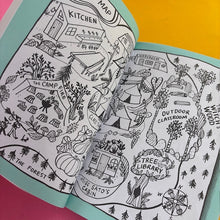 MAP
KITCHEN
THE CAMP
OUTDOOR
CLASSROOM
THE FOREST
TREE
LIBRARY
SATO'S
CABIN